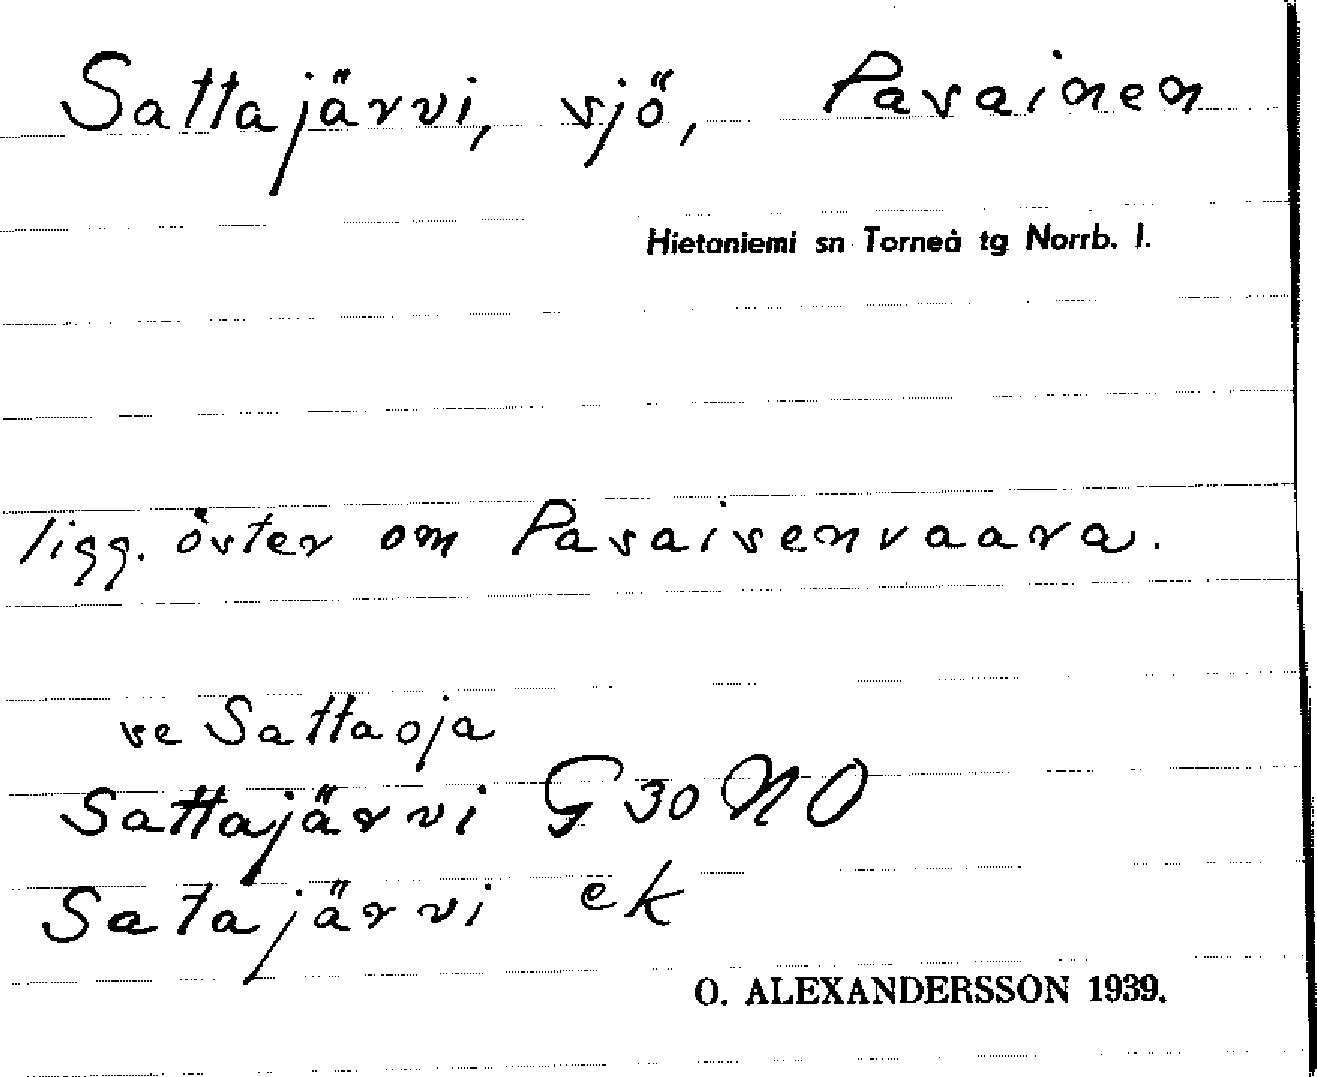 Sattajärvi, sjö, Pasainen
Hietaniemi sn Torneå tg Norrb. l.
ligg. öster om Pasaisenvaara.
se Sattaoja
Sattajärvi G 30 NO
Satajärvi ek
O. ALEXANDERSSON 1939.